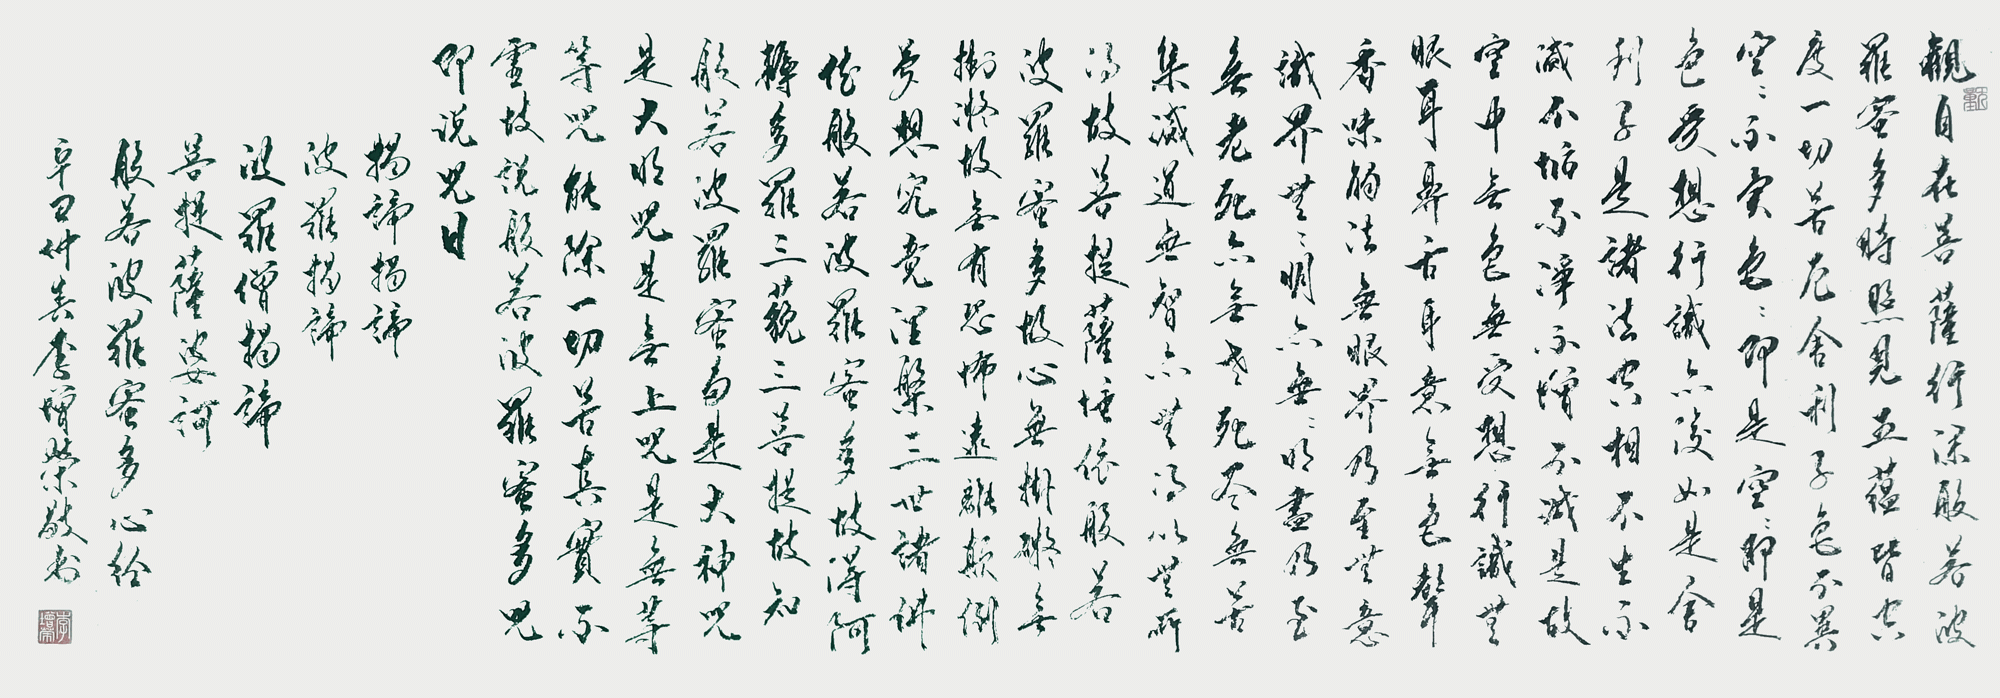 觀自在菩薩行深般若波
羅蜜多時照見五蘊皆空
度一切苦厄舍利子色不異
空〻不異色〻即是空〻即是
色受想行識亦復如是舍
利子是諸法空相不生不
滅不垢不淨不增不減是故
空中無色無受想行識無
眼耳鼻舌身意無色聲
香味觸法無眼界乃至無意
識界無〻明亦無〻明盡乃至
無老死亦無老死盡無苦
集滅道無智亦無得以無所
得故菩提薩埵依般若
波羅蜜多故心無掛礙無
掛礙故無有恐怖遠離顛倒
夢想究竟涅槃三世諸佛
依般若波羅蜜多故得阿
耨多羅三藐三菩提故知
般若波羅蜜多是大神咒
是大明咒是無上咒是無等
等咒能除一切苦真實不
虛故說般若波羅蜜多咒
即說咒曰
揭諦揭諦
波羅揭諦
波羅僧揭諦
菩提薩婆訶
般若波羅蜜多心經
辛丑仲春李增榮敬書
李增榮